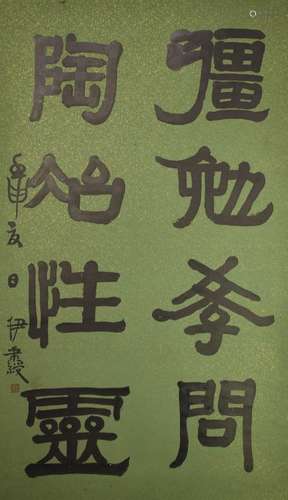 彊勉學問
陶冶性靈
日伊秉綬